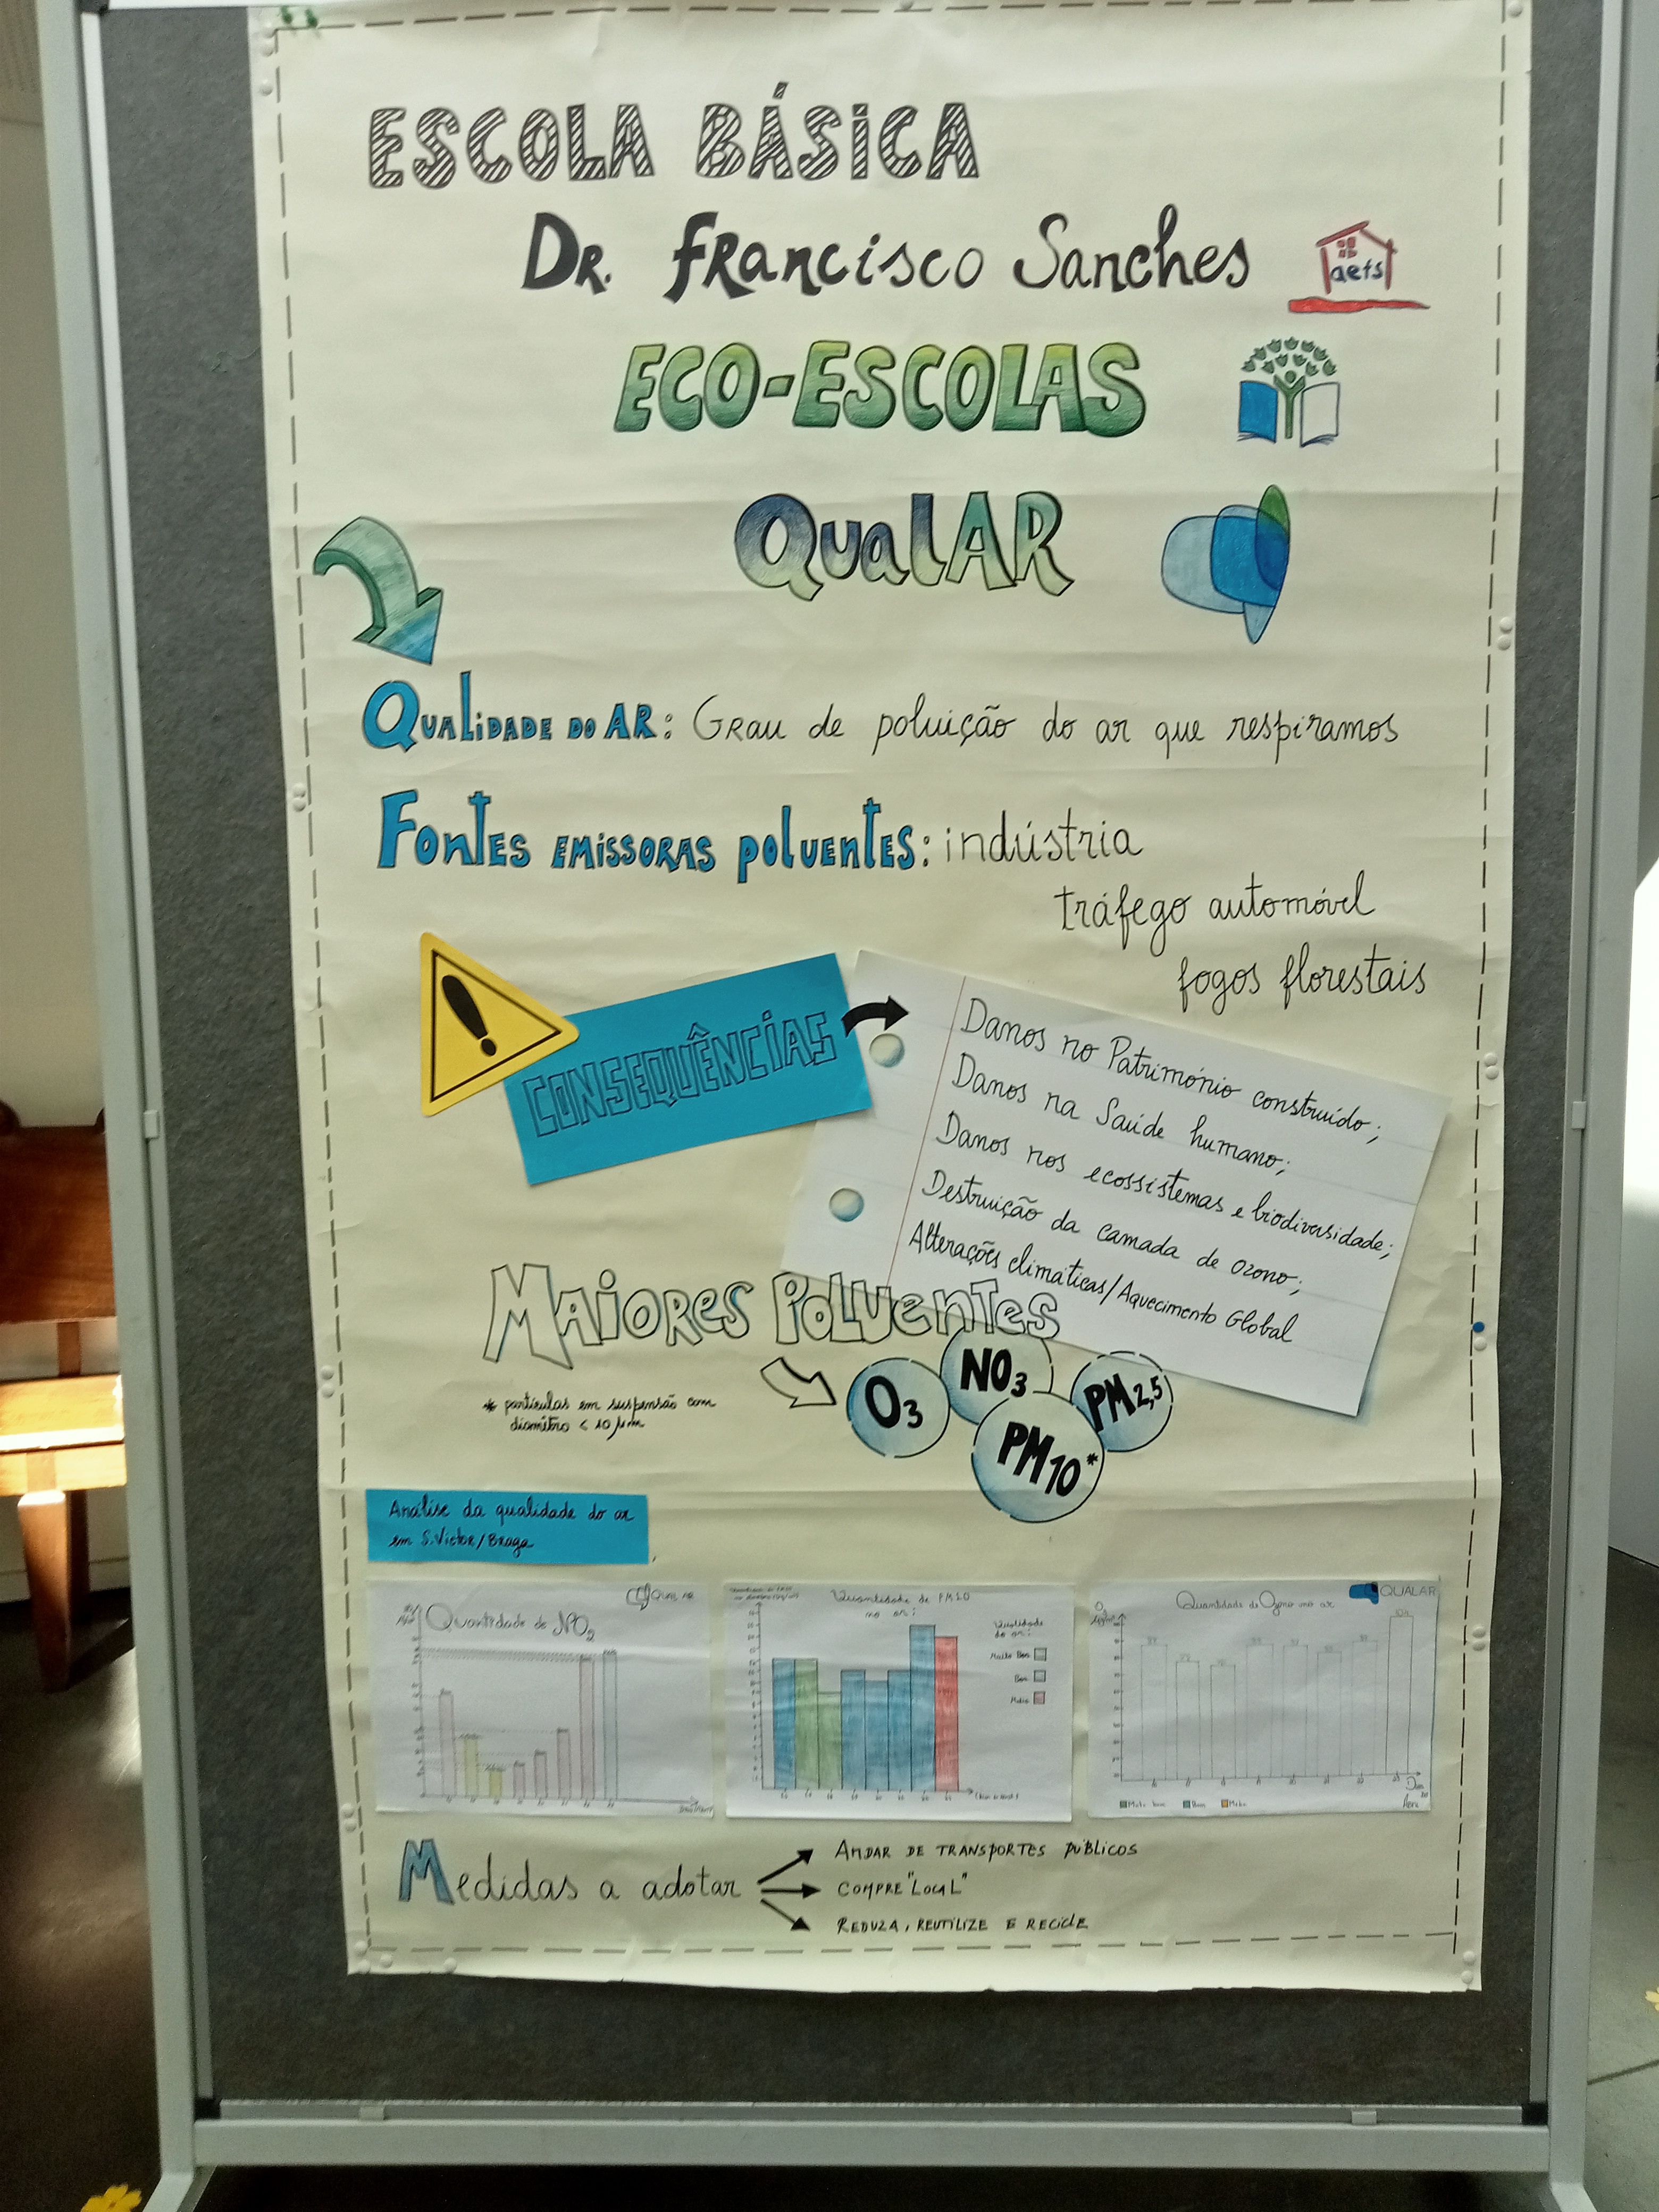 ESCOLA BÁSICA
DR. FRANCISCO Sanches
aefs
ECO-ESCOLAS
QualAR
QUALIDADE DO AR: Grau de poluição do ar que respiramos
FONTES EMISSORAS POLUENTES: indústria
tráfego automóvel
fogos florestais
CONSEQUÊNCIAS
Danos no Património construído;
Danos na Saúde humano;
Danos nos ecossistemas e biodiversidade;
Destruição da camada de ozono;
Alterações climáticas/Aquecimento Global
MAIORES POLUENTES
O3
NO3
PM2,5
PM10*
* partículas em suspensão com
diamêtro < 10 µm
Análise da qualidade do ar
em S.Victor/Braga
QUALAR
Quantidade de NO2
Quantidade de PM10
no ar:
Qualidade
do ar:
Muito Bom
Bom
Médio
QUALAR
Quantidade de Ozono no ar
Muito bom
Bom
Médio
Dias
Medidas a adotar
ANDAR DE TRANSPORTES PÚBLICOS
COMPRE "LOCAL"
REDUZA, REUTILIZE E RECICLE